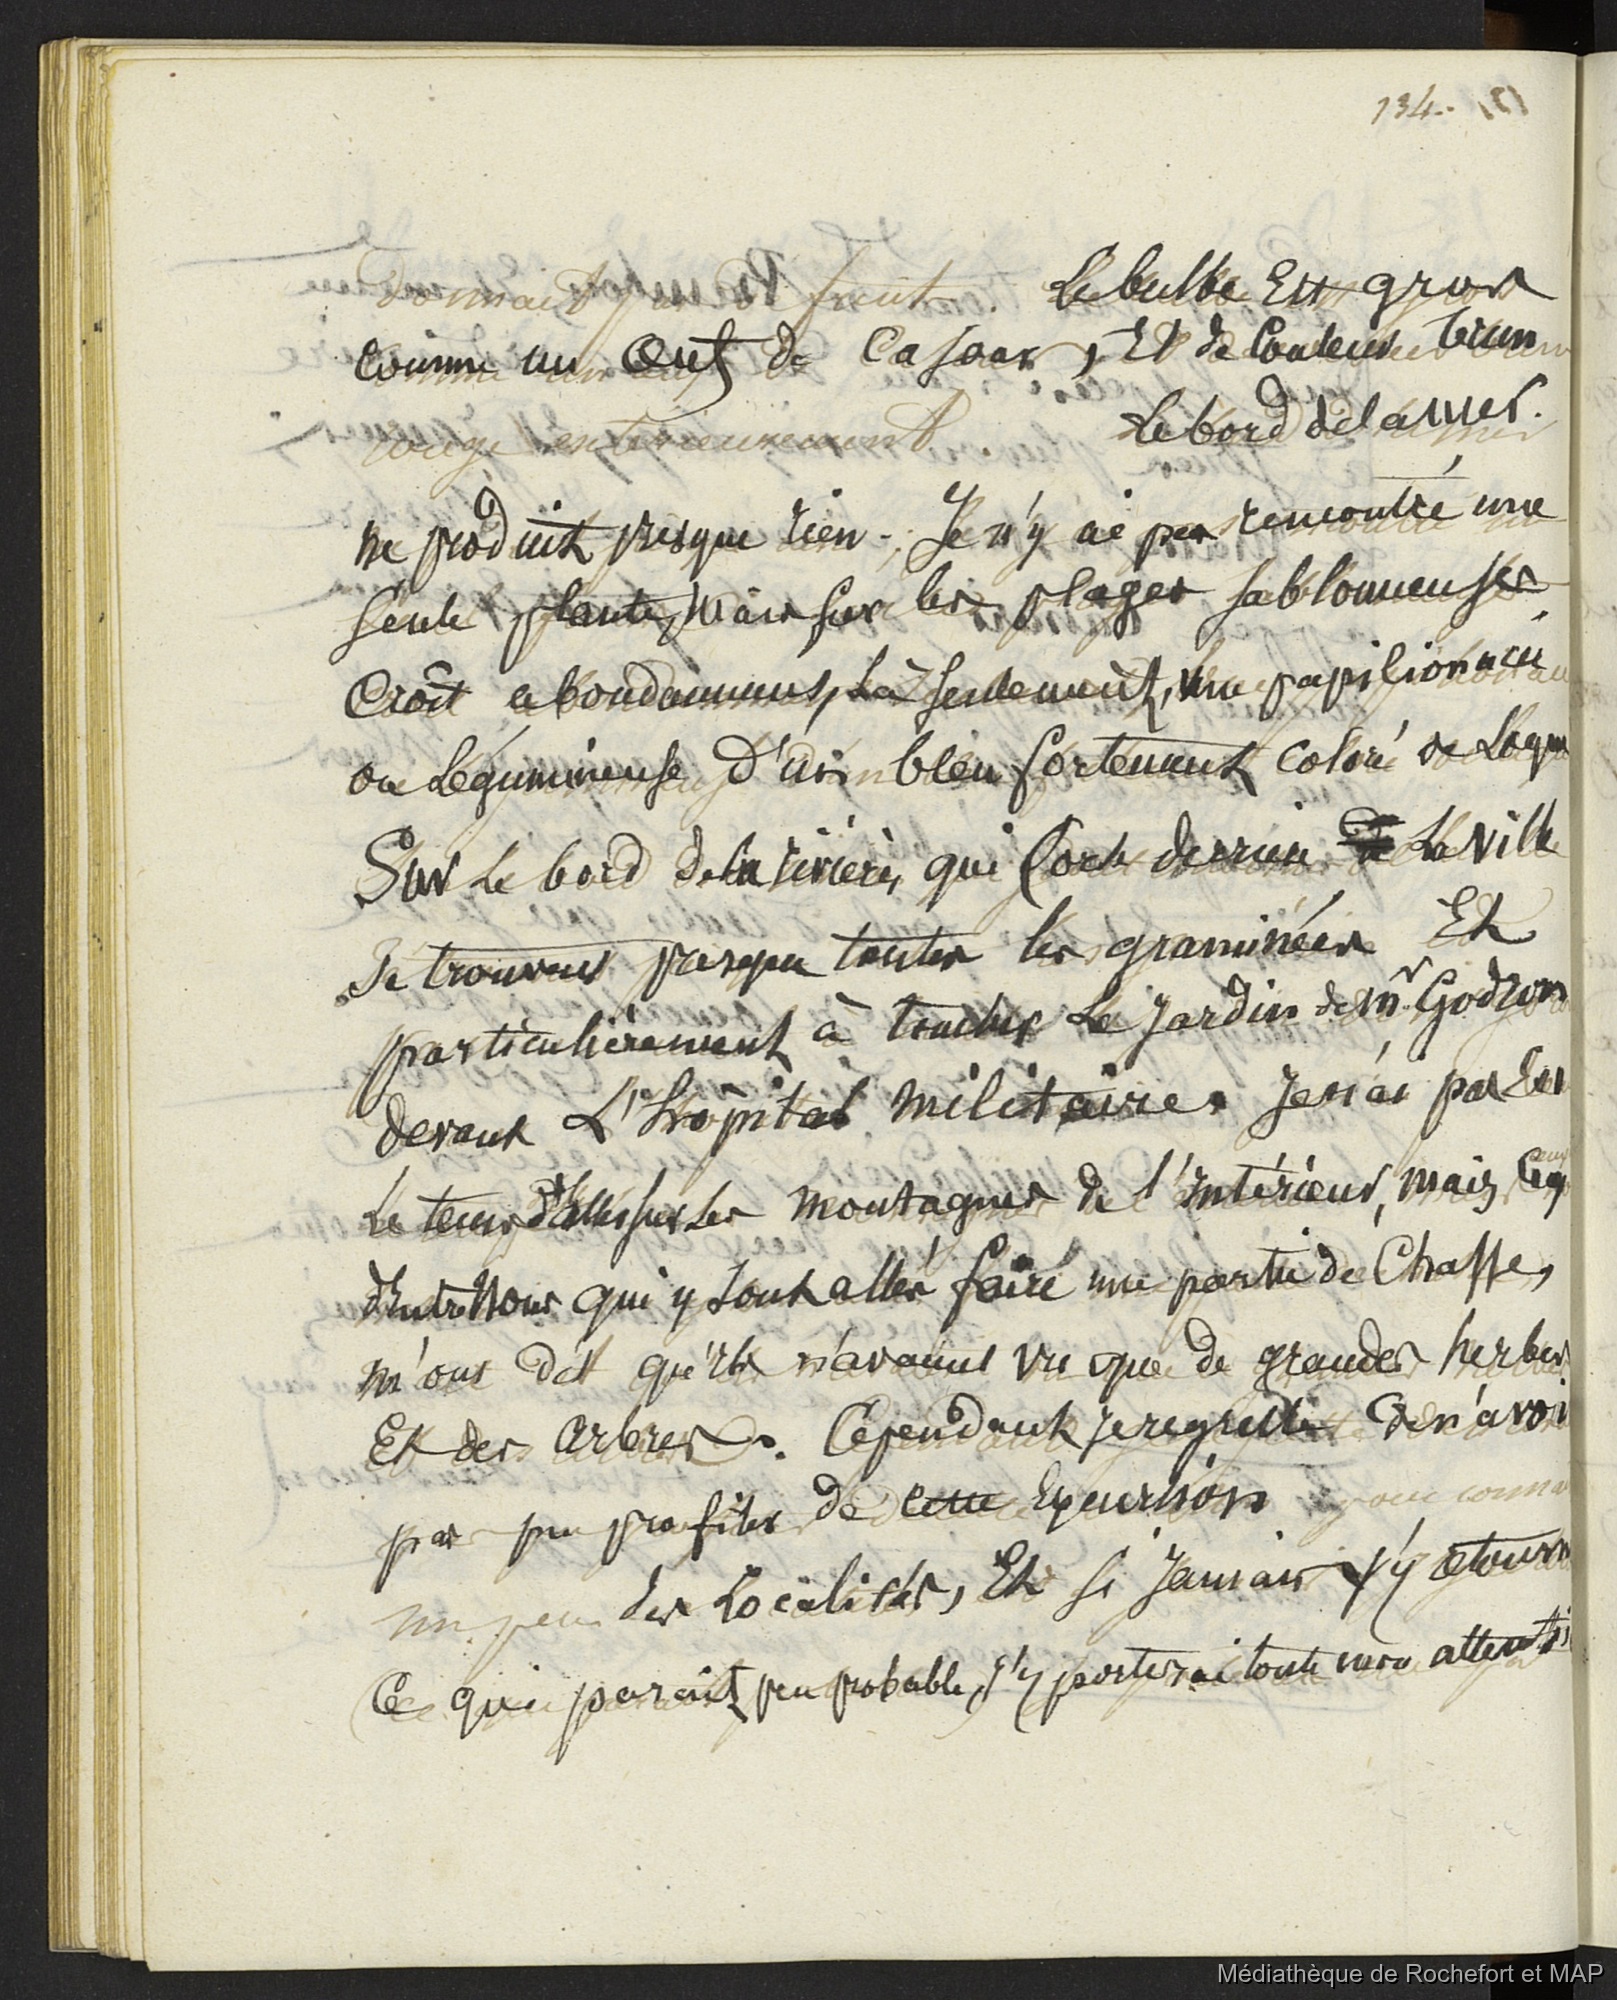 134.
donnait pas de fruit. Le bulbe Est gros
comme un Œuf de Casoar, Et de Couleur brun
rouge extérieurement. Le bord de la mer.
ne produit presque rien. Je n'y ai pas rencontré une
seule plante, Mais sur les plages sablonneuses
Croît abondamment, Là seulement, Une papilionacée
ou Légumineuse d'un bleu fortement coloré
Sur Le bord de la rivière, qui sort derrière La ville
Se trouvent presque toutes les graminées Et
particulièrement à toucher Le Jardin de Mr Godron
devant L'hôpital Militaire. Je n'ai pas Eu
Le tems d'aller sur Les Montagnes de l'Intérieur, mais
d'Entre Nous qui y sont allés faire une partie de Chasse,
m'ont dit qu'Ils n'avaient vu que de grandes herbes
Et des Arbres. Cependant Je regrette de n'avoi
pas pu profiter de cette Excursion pour conna
un peu des Localités, Et si Jamais J'y retourn
Ce qui parait peu probable, J'y porterai toute mon attenti
Médiathèque de Rochefort et MAP